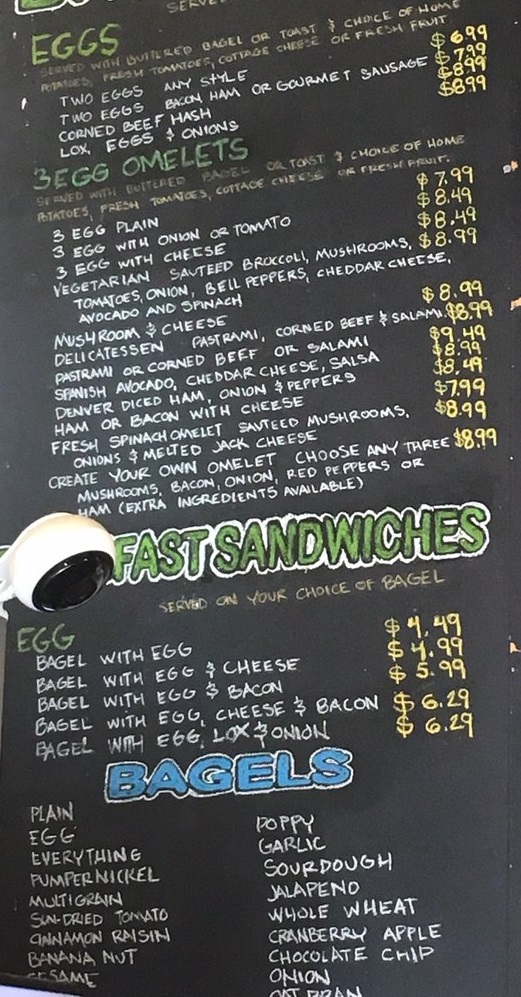 SERVE
EGGS
SERVED WITH BUTTERED BAGEL OR TOAST & CHOICE OF HOME
POTATOES, FRESH TOMATOES, COTTAGE CHEESE OR FRESH FRUIT
TWO EGGS ANY STYLE $6.99
TWO EGGS BACON, HAM OR GOURMET SAUSAGE $7.99
CORNED BEEF HASH $8.99
LOX, EGGS & ONIONS $8.99
3 EGG OMELETS
SERVED WITH BUTTERED BAGEL OR TOAST & CHOICE OF HOME
POTATOES, FRESH TOMATOES, COTTAGE CHEESE OR FRESH FRUIT.
3 EGG PLAIN $7.99
3 EGG WITH ONION OR TOMATO $8.49
3 EGG WITH CHEESE $8.49
VEGETARIAN SAUTEED BROCCOLI, MUSHROOMS, $8.99
TOMATOES, ONION, BELL PEPPERS, CHEDDAR CHEESE,
AVOCADO AND SPINACH
MUSHROOM & CHEESE $8.99
DELICATESSEN PASTRAMI, CORNED BEEF & SALAMI $8.99
PASTRAMI OR CORNED BEEF OR SALAMI $9.49
SPANISH AVOCADO, CHEDDAR CHEESE, SALSA $8.99
DENVER DICED HAM, ONION & PEPPERS $8.49
HAM OR BACON WITH CHEESE $7.99
FRESH SPINACH OMELET SAUTEED MUSHROOMS, $8.99
ONIONS & MELTED JACK CHEESE
CREATE YOUR OWN OMELET CHOOSE ANY THREE $8.99
MUSHROOMS, BACON, ONION, RED PEPPERS OR
HAM (EXTRA INGREDIENTS AVAILABLE)
FAST SANDWICHES
SERVED ON YOUR CHOICE OF BAGEL
EGG
BAGEL WITH EGG $4.49
BAGEL WITH EGG & CHEESE $4.99
BAGEL WITH EGG & BACON $5.99
BAGEL WITH EGG, CHEESE & BACON $6.29
BAGEL WITH EGG, LOX & ONION $6.29
BAGELS
PLAIN
EGG
EVERYTHING
PUMPERNICKEL
MULTIGRAIN
SUN-DRIED TOMATO
CINNAMON RAISIN
BANANA NUT
SESAME
POPPY
GARLIC
SOURDOUGH
JALAPENO
WHOLE WHEAT
CRANBERRY APPLE
CHOCOLATE CHIP
ONION
OAT BRAN